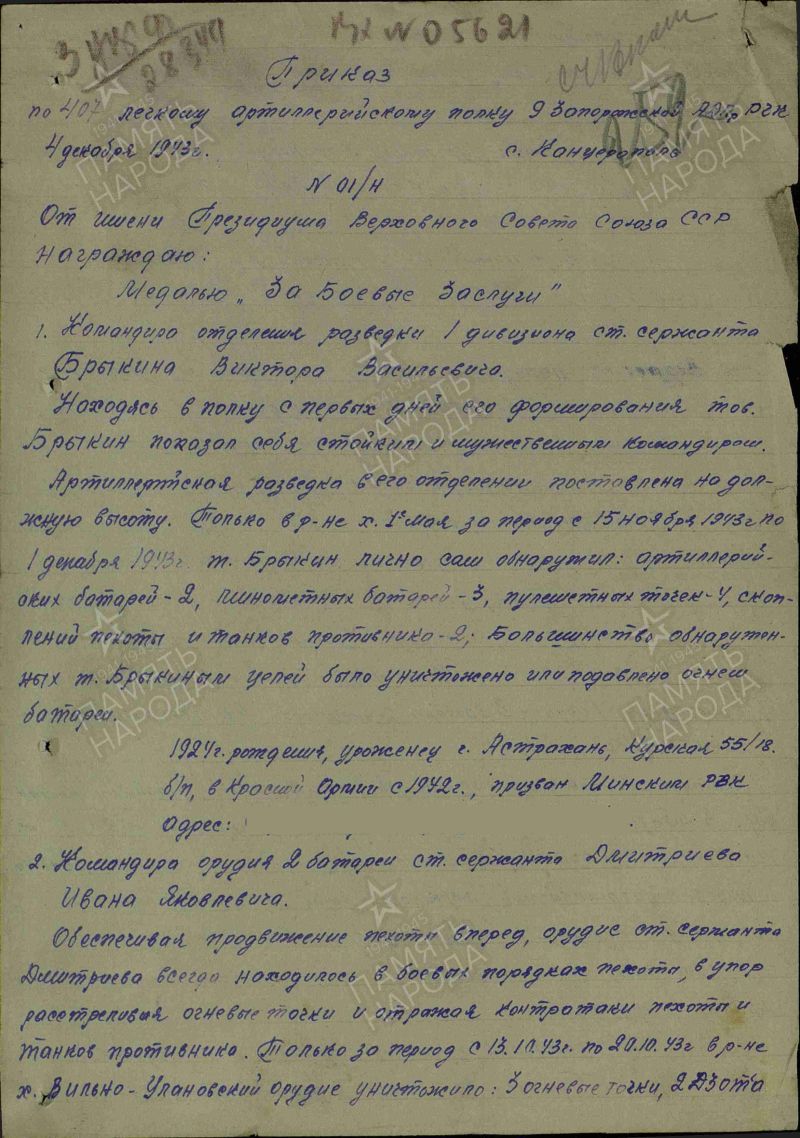 Вх N 05621
28349
Приказ
по 407 легкому артиллерийскому полку 9 Запорожской АДпр РГК
4 декабря 1943г. с. Канцерополь
N 01/н
От имени Президиума Верховного Совета Союза ССР
награждаю:
Медалью „За Боевые Заслуги"
1. Командира отделения разведки 1 дивизиона ст. сержанта
Брыкина Виктора Васильевича.
Находясь в полку с первых дней его формирования тов.
Брыкин показал себя стойким и мужественным командиром.
Артиллерийская разведка в его отделении поставлена на дол-
жную высоту. Только в р-не х. 1е мая за период с 15 ноября 1943г по
1 декабря 1943г. т. Брыкин лично сам обнаружил: артиллерий-
ских батарей-2, минометных батарей-3, пулеметных точек-4, скоп-
лений пехоты и танков противника-2; Большинство обнаружен-
ных т. Брыкиным целей было уничтожено или подавлено огнем
батареи.
1924г. рождения, уроженец г. Астрахань, Курская 55/18.
б/п, в Красной Армии с 1942г., призван Минским РВК
Адрес:
2. Командира орудия 2 батареи ст. сержанта Дмитриева
Ивана Яковлевича.
Обеспечивая продвижение пехоты вперед, орудие ст. сержанта
Дмитриева всегда находилось в боевых порядках пехоты, в упор
расстреливая огневые точки и отражая контратаки пехоты и
танков противника. Только за период с 13.10.43г. по 20.10.43г в р-не
х. Вильно-Улановский орудие уничтожило: 3 огневые точки, 2 ДЗОТа
ПАМЯТЬ НАРОДА
1941-1945